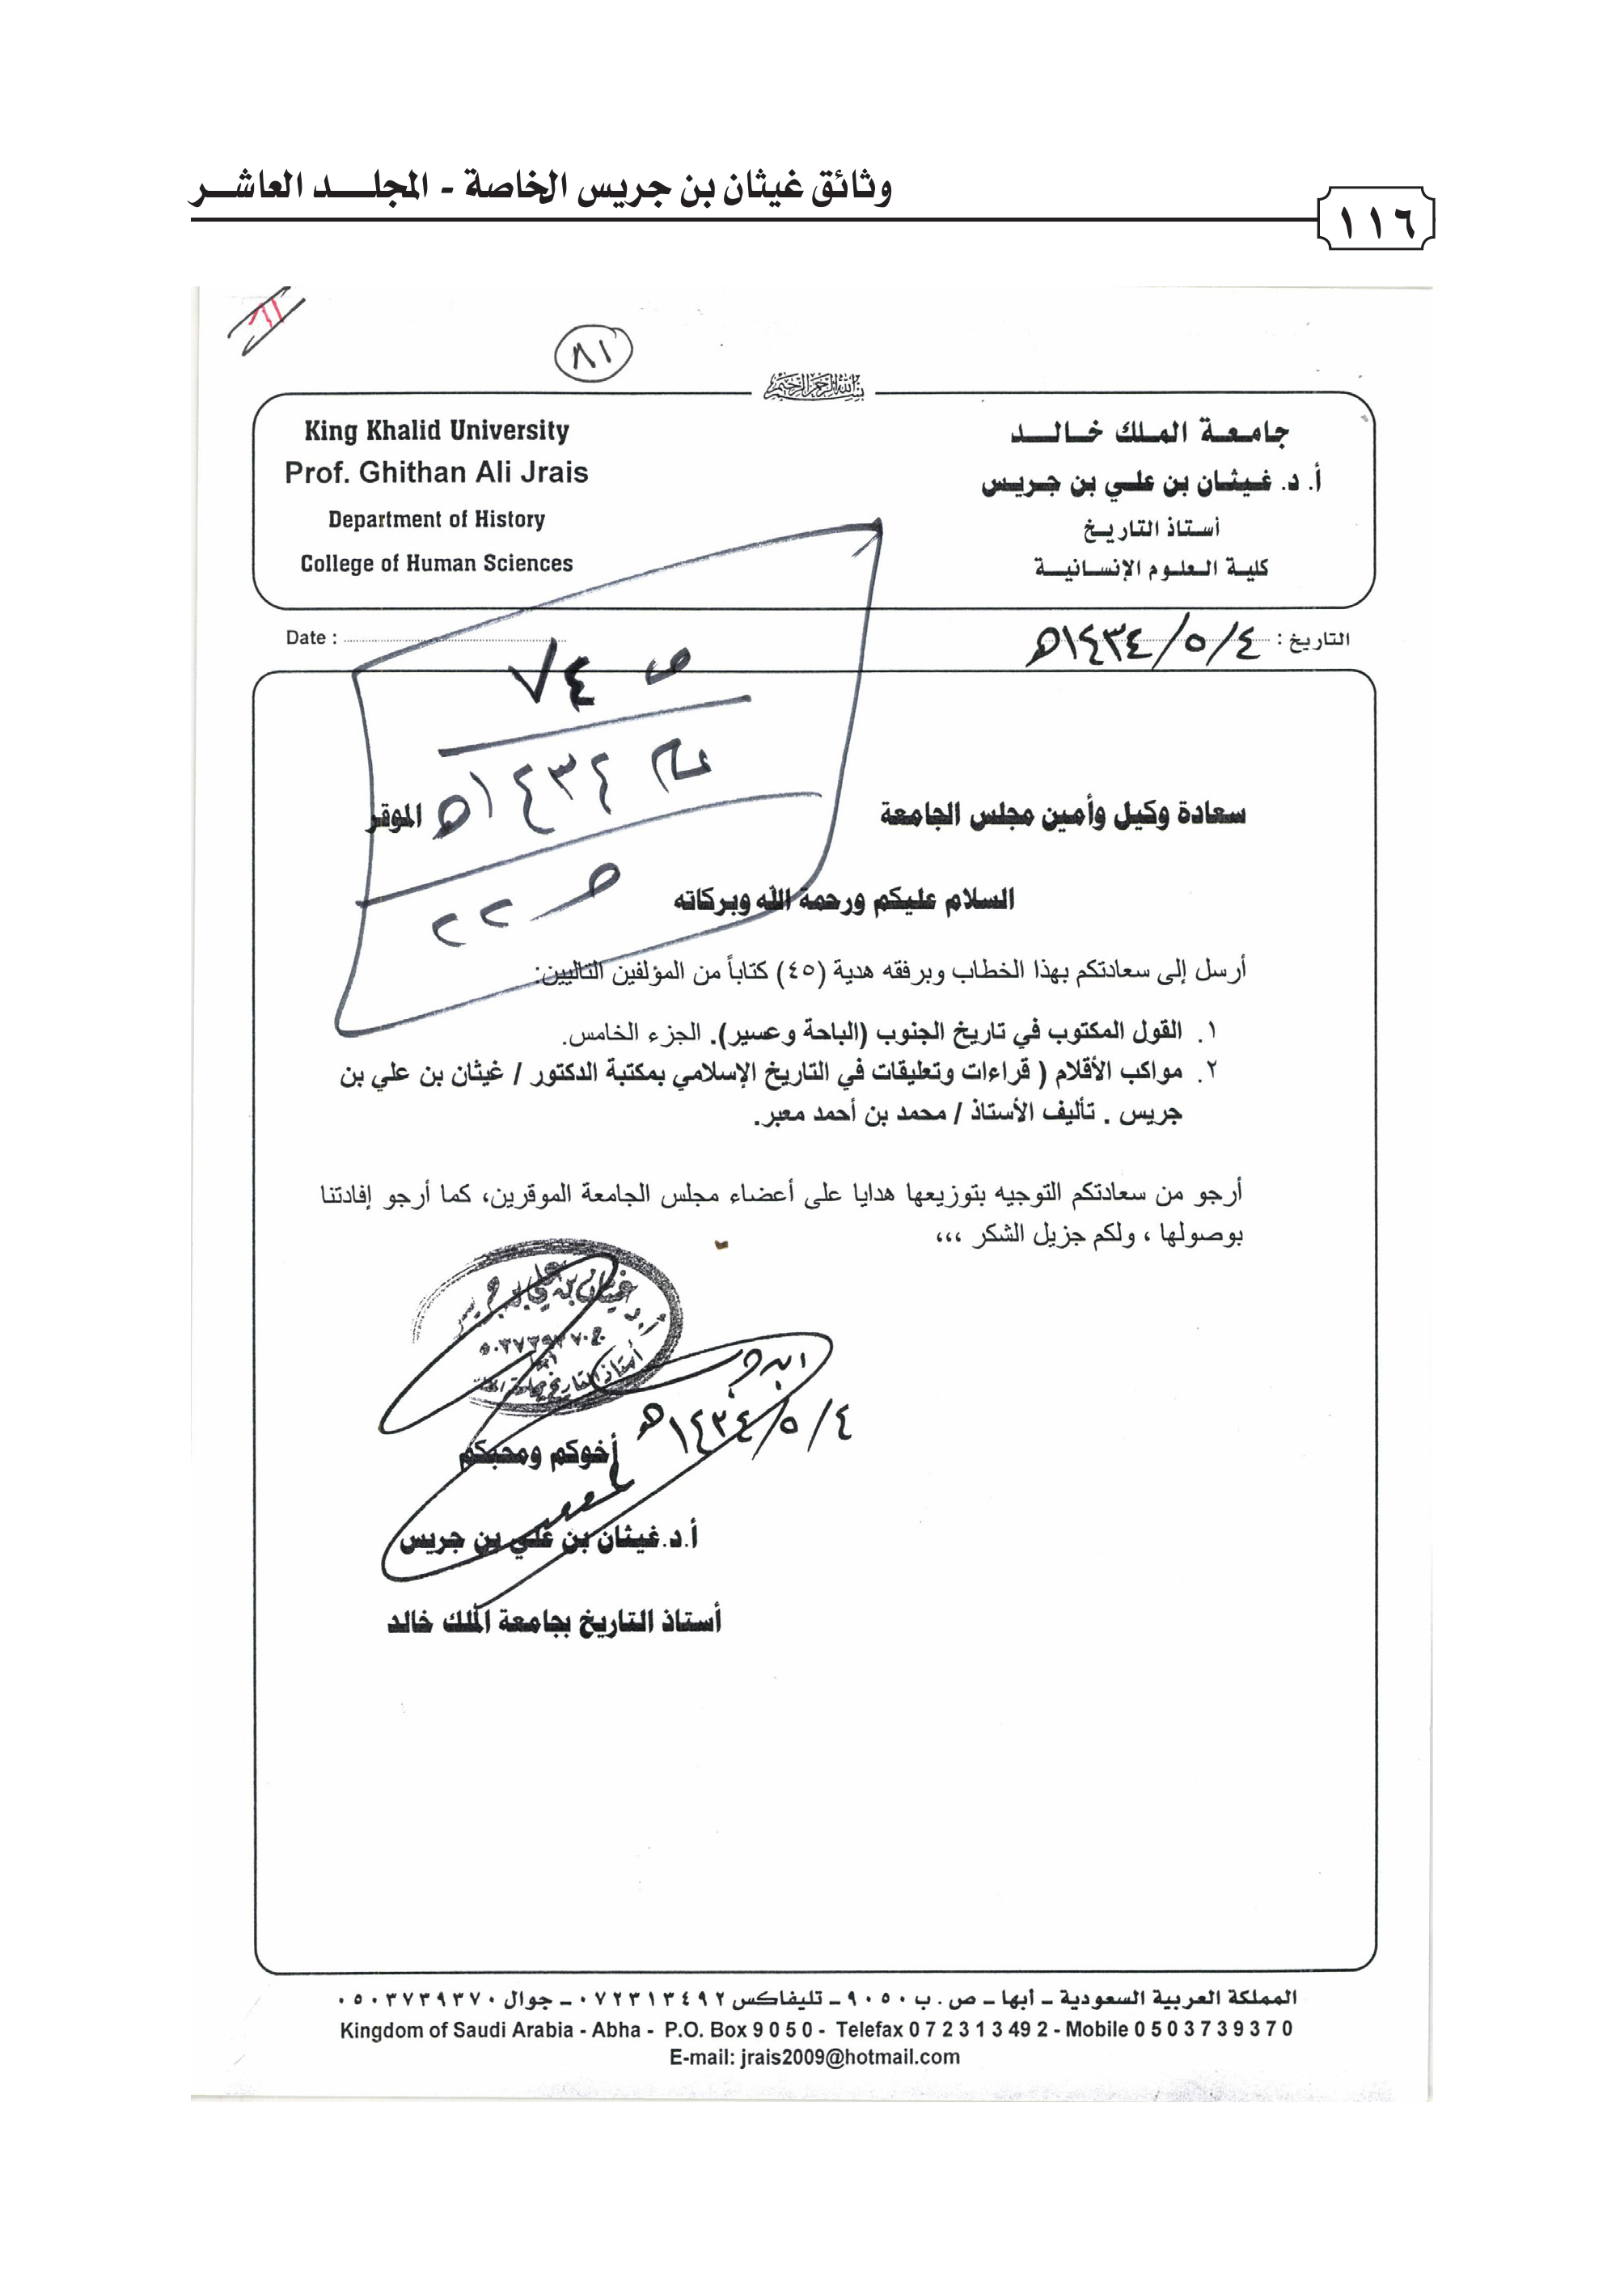 وثائق غيثان بن جريس الخاصة - المجلد العاشر
١١٦
٨١
بسم الله الرحمن الرحيم
جامعة الملك خالد
أ. د. غيثان بن علي بن جريس
أستاذ التاريخ
كلية العلوم الإنسانية
King Khalid University
Prof. Ghithan Ali Jrais
Department of History
College of Human Sciences
التاريخ : ٤/٥/١٤٣٤هـ
Date :
ص ٧٤
عام ١٤٣٤هـ
ص ٢٢
سعادة وكيل وأمين مجلس الجامعة الموقر
السلام عليكم ورحمة الله وبركاته
أرسل إلى سعادتكم بهذا الخطاب وبرفقه هدية (٤٥) كتاباً من المؤلفين التاليين:
١. القول المكتوب في تاريخ الجنوب (الباحة وعسير). الجزء الخامس.
٢. مواكب الأقلام ( قراءات وتعليقات في التاريخ الإسلامي بمكتبة الدكتور / غيثان بن علي بن
جريس . تأليف الأستاذ / محمد بن أحمد معبر.
أرجو من سعادتكم التوجيه بتوزيعها هدايا على أعضاء مجلس الجامعة الموقرين، كما أرجو إفادتنا
بوصولها ، ولكم جزيل الشكر ،،،
أ.د غيثان بن علي بن جريس
أستاذ التاريخ بجامعة الملك
ابن جريس
٤/٥/١٤٣٤هـ
أخوكم ومحبكم
أ.د.غيثان بن علي بن جريس
أستاذ التاريخ بجامعة الملك خالد
المملكة العربية السعودية ــ أبها ــ ص . ب ٩٠٥٠ ــ تليفاكس ٠٧٢٣١٣٤٩٢ ــ جوال ٠٥٠٣٧٣٩٣٧٠
Kingdom of Saudi Arabia - Abha - P.O. Box 9 0 5 0 - Telefax 0 7 2 3 1 3 49 2 - Mobile 0 5 0 3 7 3 9 3 7 0
E-mail: jrais2009@hotmail.com